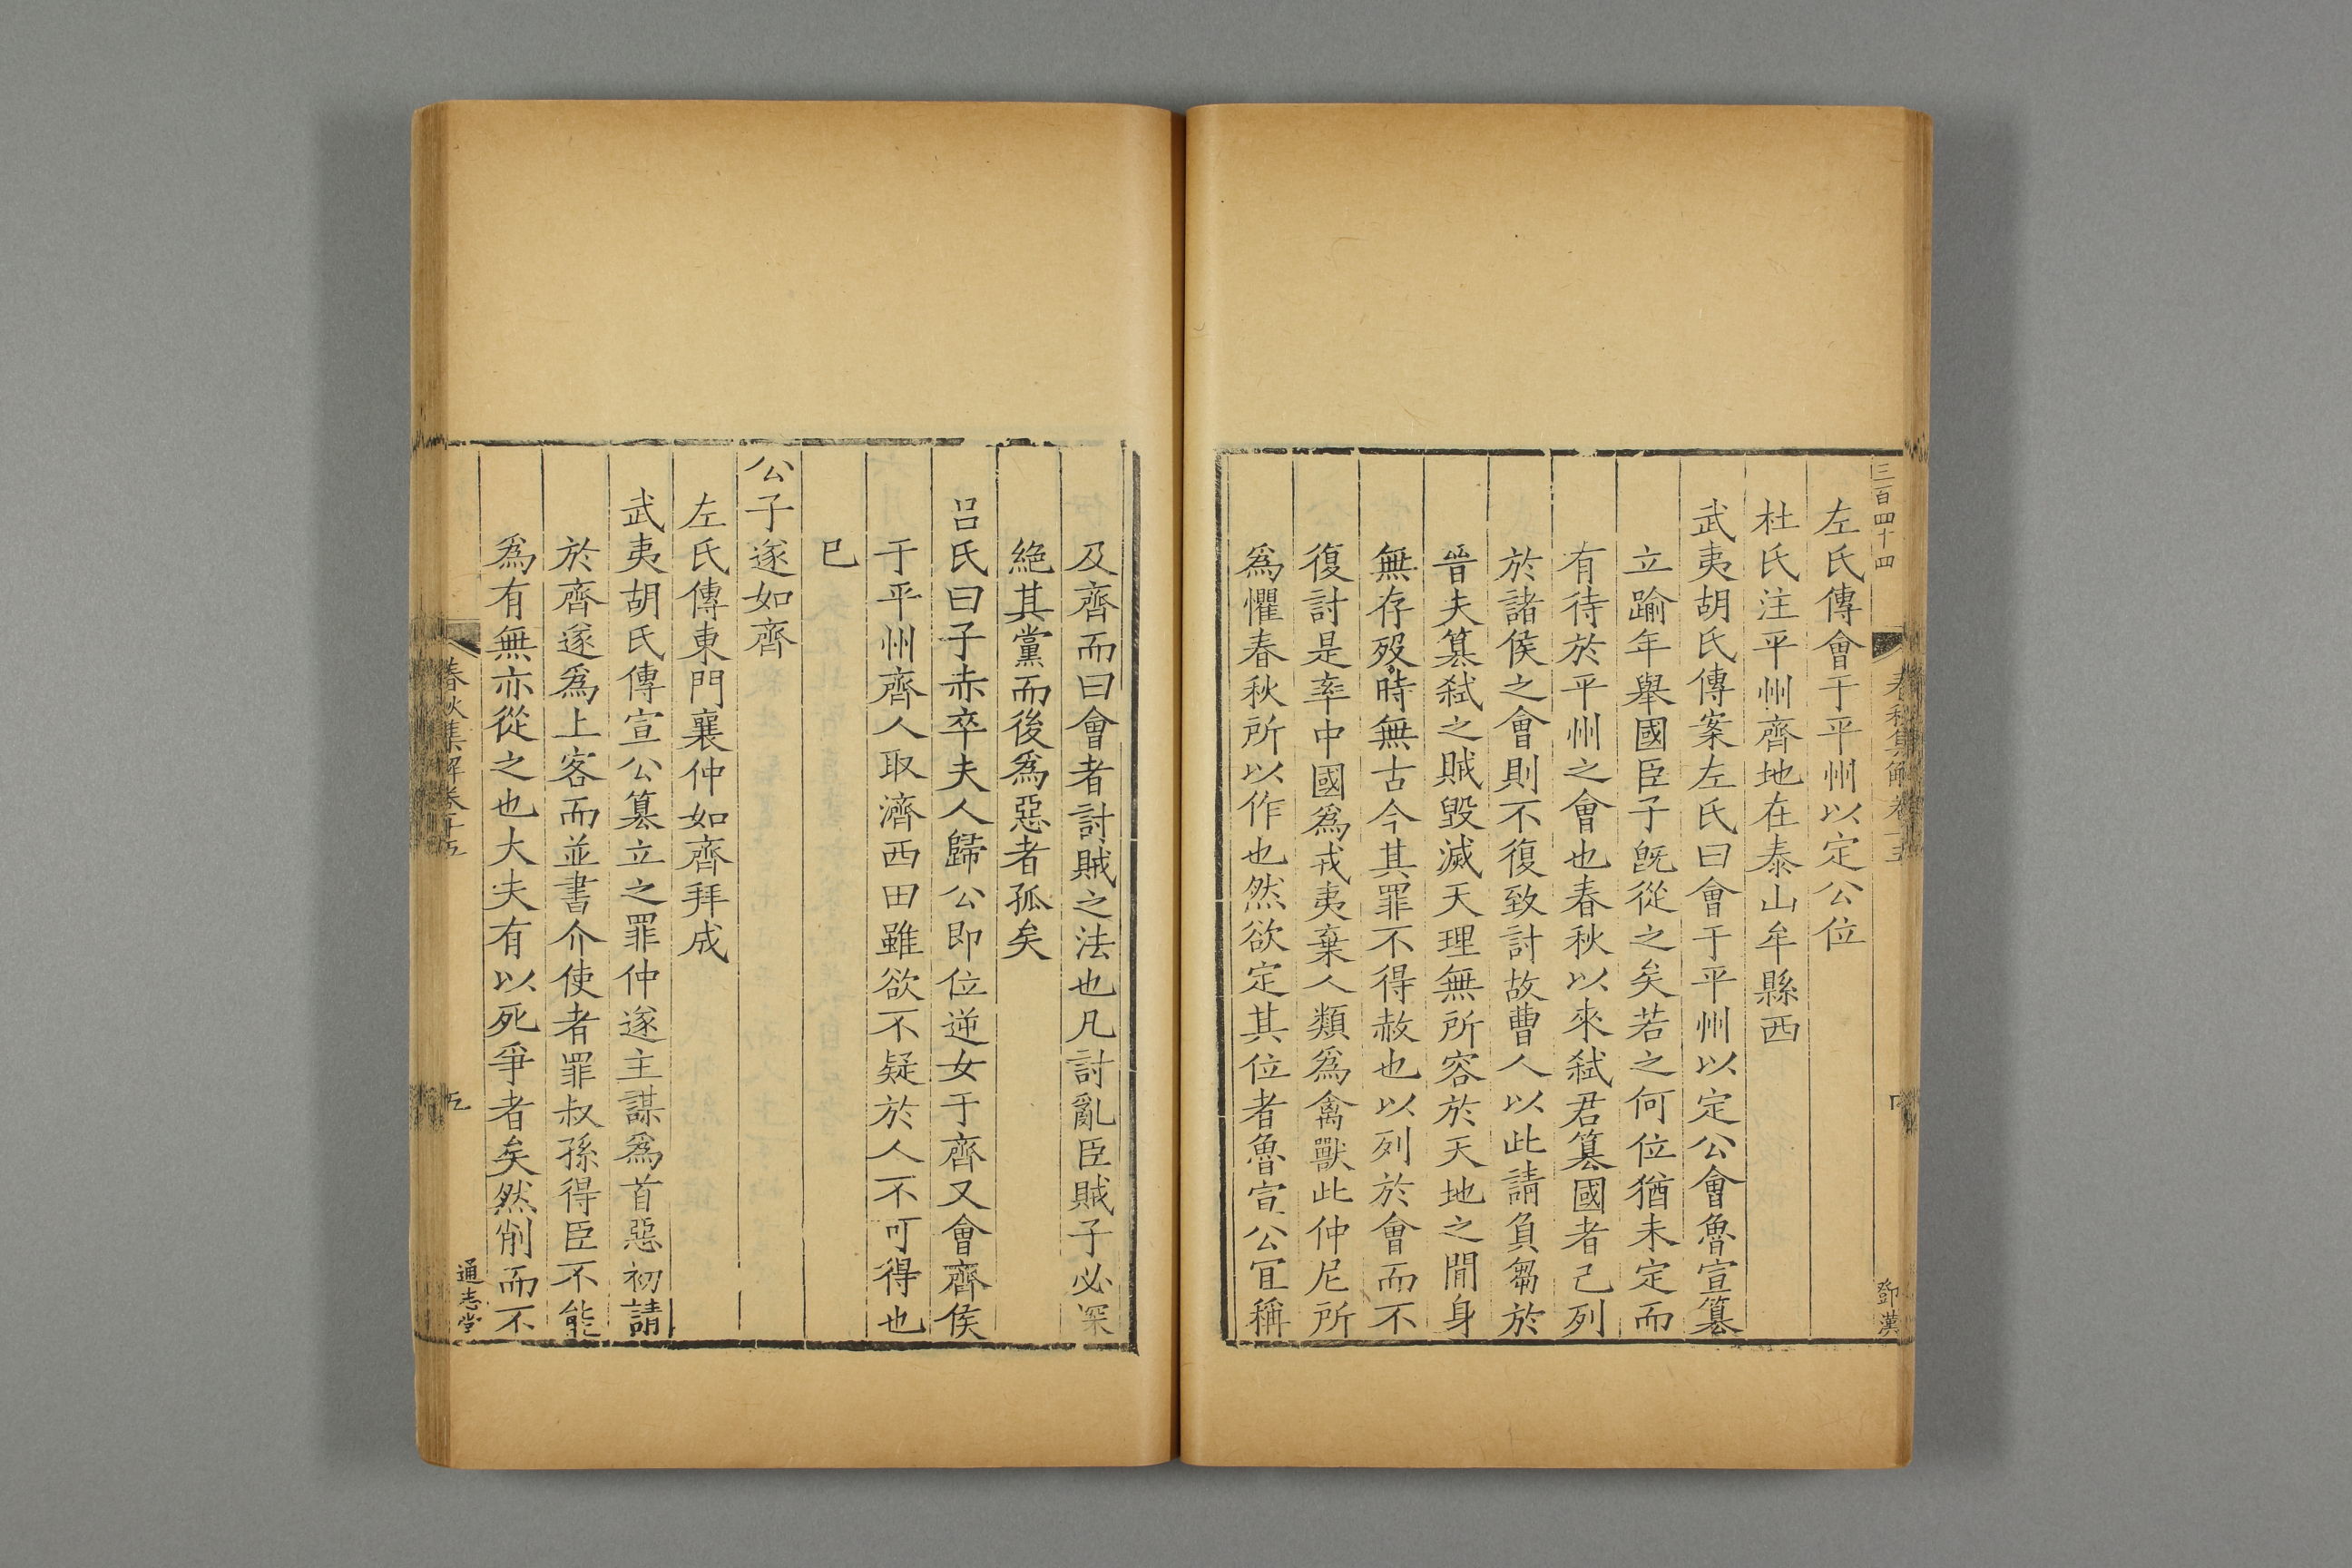 三百四十四
春秋集解卷十五
鄧漢
左氏傳會于平州以定公位
杜氏注平州齊地在泰山牟縣西
武夷胡氏傳案左氏曰會于平州以定公會魯宣篡
立踰年舉國臣子旣從之矣若之何位猶未定而
有待於平州之會也春秋以來弑君篡國者已列
於諸侯之會則不復致討故曹人以此請負芻於
晉夫篡弑之賊毀滅天理無所容於天地之間身
無存歿時無古今其罪不得赦也以列於會而不
復討是率中國爲戎夷棄人類爲禽獸此仲尼所
爲懼春秋所以作也然欲定其位者魯宣公宜稱
及齊而曰會者討賊之法也凡討亂臣賊子必深
絕其黨而後爲惡者孤矣
呂氏曰子赤卒夫人歸公即位逆女于齊又會齊侯
于平州齊人取濟西田雖欲不疑於人不可得也
已
公子遂如齊
左氏傳東門襄仲如齊拜成
武夷胡氏傳宣公篡立之罪仲遂主謀爲首惡初請
於齊遂爲上客而並書介使者罪叔孫得臣不能
爲有無亦從之也大夫有以死爭者矣然削而不
春秋集解卷十五
五
通志堂